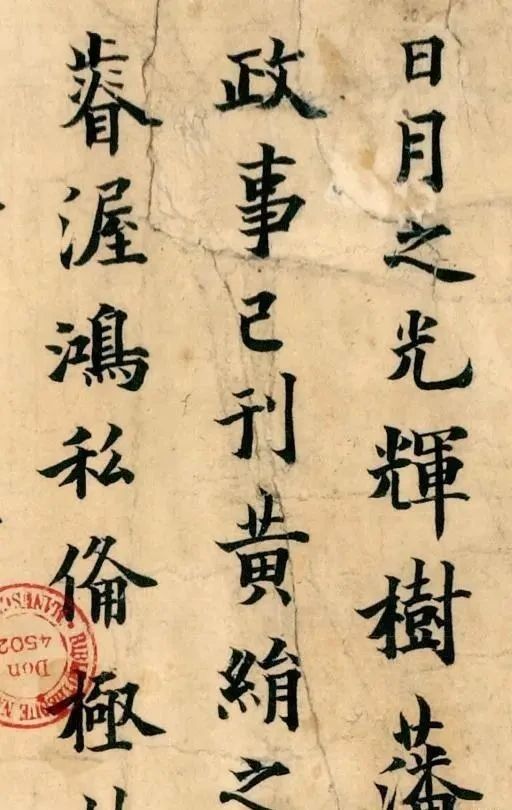 日月之光輝樹藩
政事已刊黄絹之
睿渥鴻私俻極
Don 4502